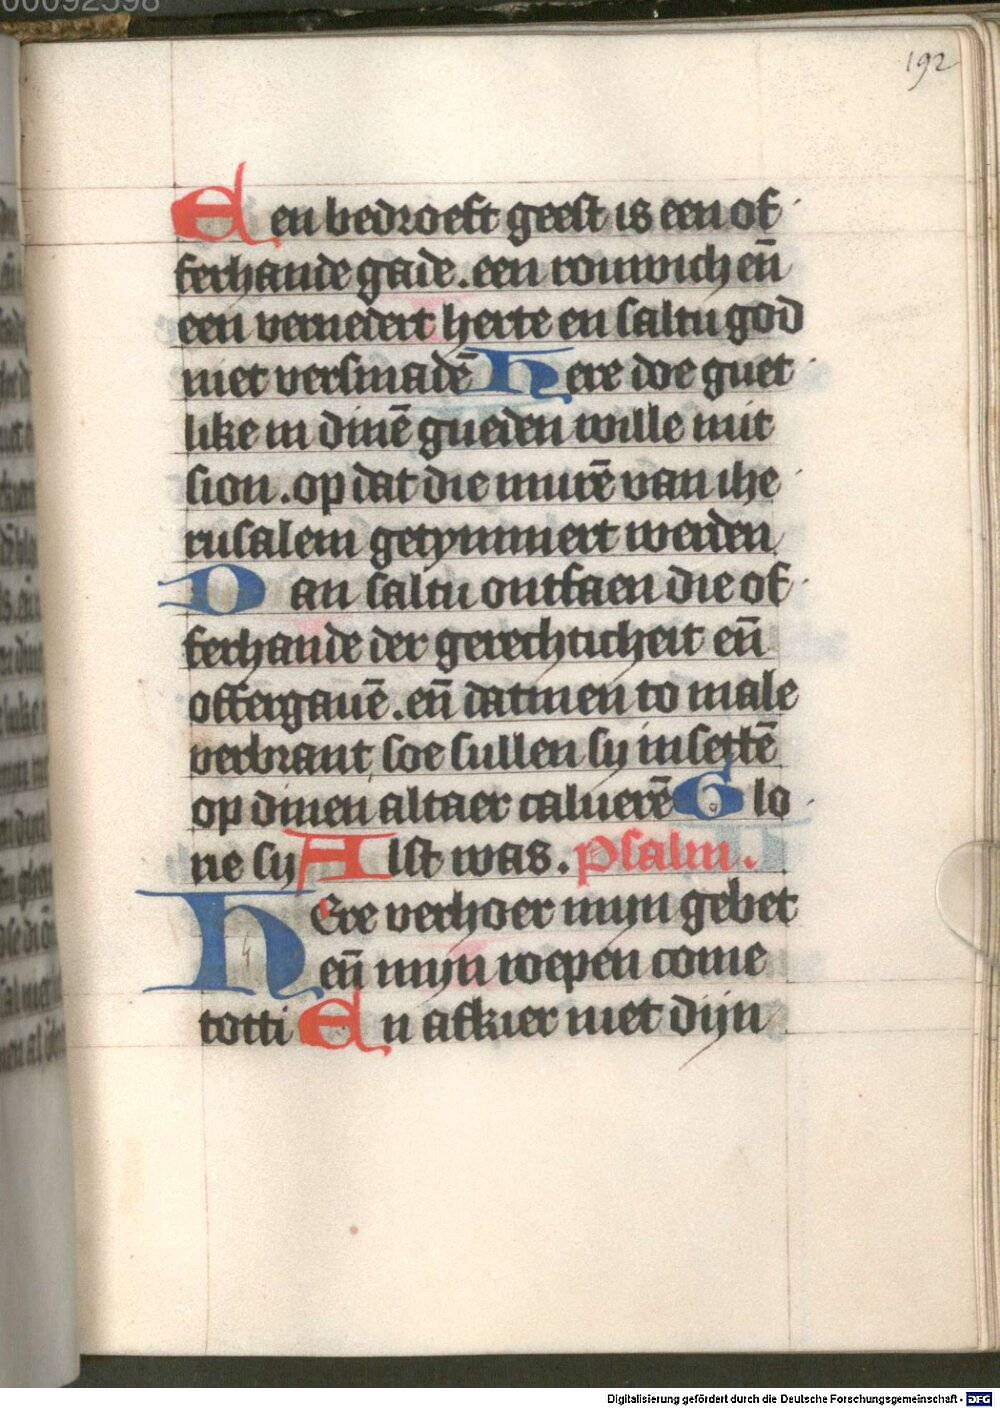 00092598
192
Een bedroeft geest is een of
ferhande gade. een rouwich eñ
een vernedert herte en saltu god
niet versmadē Here doe guet
like in dinē gueden wille mit
sion. op dat die murē van ihe
rusalem getymmert werden
Dan saltu ontfaen die of
ferhande der gerechticheit eñ
offergauē. eñ datmen to male
verbrant soe sullen sy in settē
op dinen altaer caluerē Glo
rie sy Alst was. Psalm.
HEre verhoer mijn gebet
eñ mijn roepen come
totti En afkier niet dijn
Digitalisierung gefördert durch die Deutsche Forschungsgemeinschaft - DFG